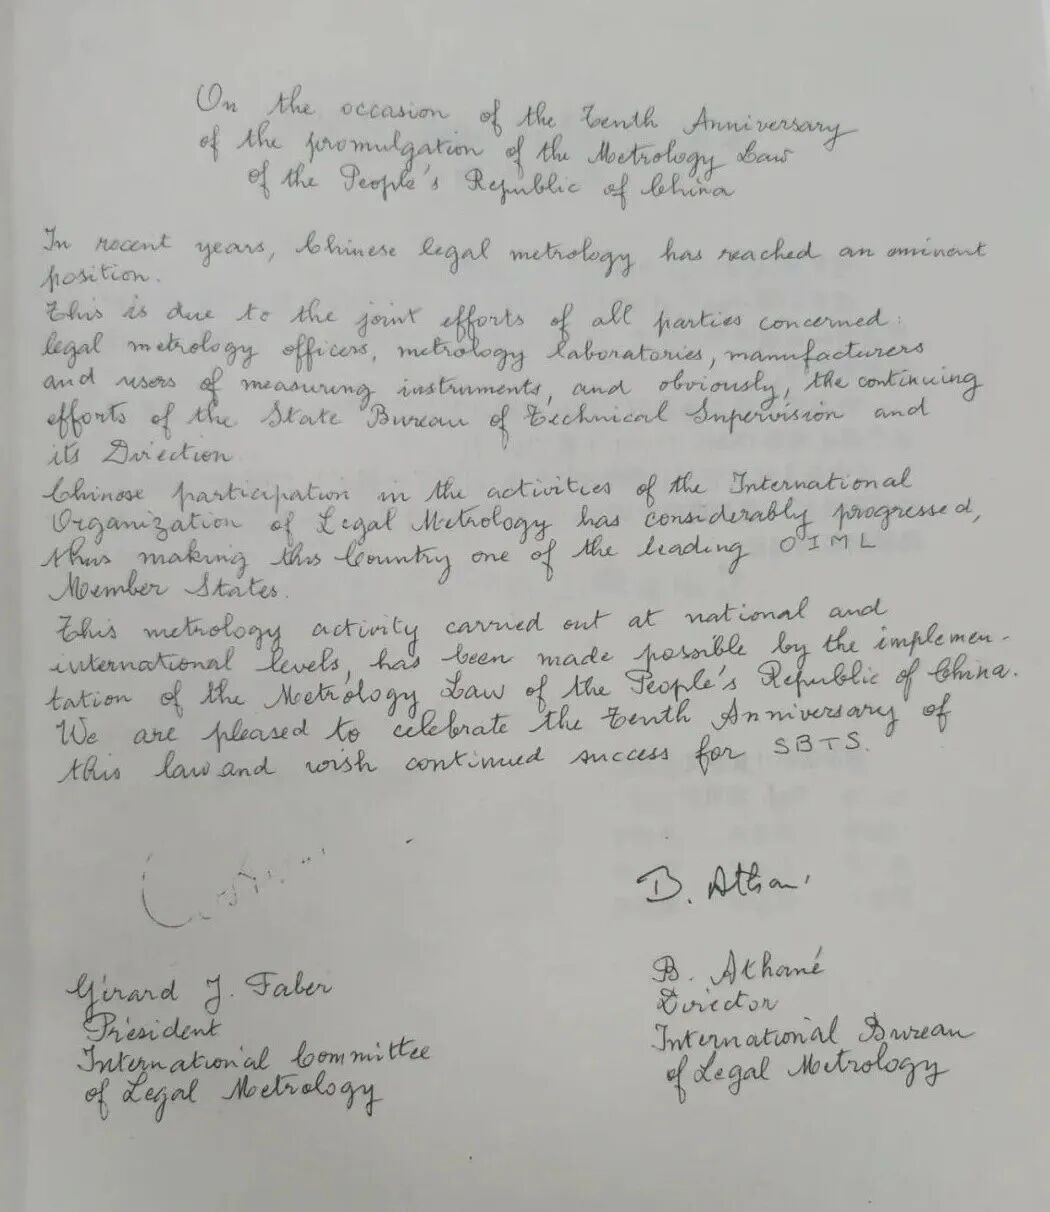 On the occasion of the Tenth Anniversary
of the promulgation of the Metrology Law
of the People's Republic of China
In recent years, Chinese legal metrology has reached an eminent
position.
This is due to the joint efforts of all parties concerned:
legal metrology officers, metrology laboratories, manufacturers
and users of measuring instruments, and obviously, the continuing
efforts of the State Bureau of Technical Supervision and
its Direction
Chinese participation in the activities of the International
Organization of Legal Metrology has considerably progressed,
thus making this Country one of the leading OIML
Member States.
This metrology activity carried out at national and
international levels, has been made possible by the implemen-
tation of the Metrology Law of the People's Republic of China.
We are pleased to celebrate the Tenth Anniversary of
this law and wish continued success for SBTS.
B. Atha
Gérard J. Faber
B. Athané
President
Director
International Committee
International Bureau
of Legal Metrology
of Legal Metrology